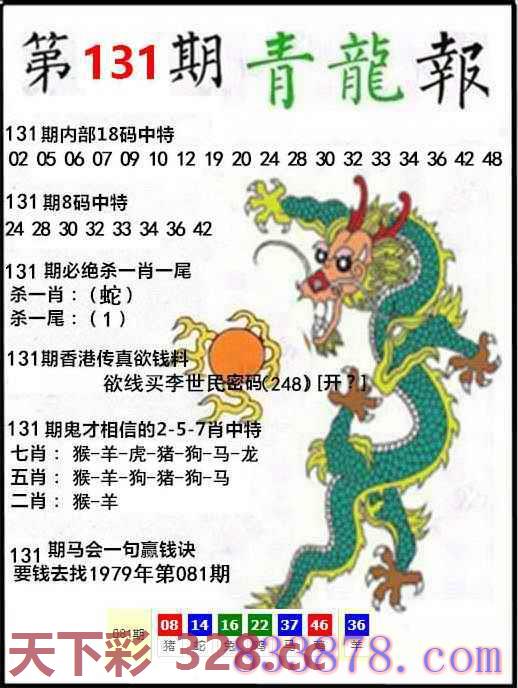 第131期青龍報
131期内部18码中特
02 05 06 07 09 10 12 19 20 24 28 30 32 33 34 36 42 48
131期8码中特
24 28 30 32 33 34 36 42
131期必绝杀一肖一尾
杀一肖：（蛇）
杀一尾：（1）
131期香港传真欲钱料
欲线买李世民密码(248)[开?]
131期鬼才相信的2-5-7肖中特
七肖：猴-羊-虎-猪-狗-马-龙
五肖：猴-羊-狗-猪-狗-马
二肖：猴-羊
131期马会一句赢钱诀
要钱去找1979年第081期
081期 08 14 16 22 37 46 36
猪 蛇 兔 马 羊
天下彩 328.cc 833878.com